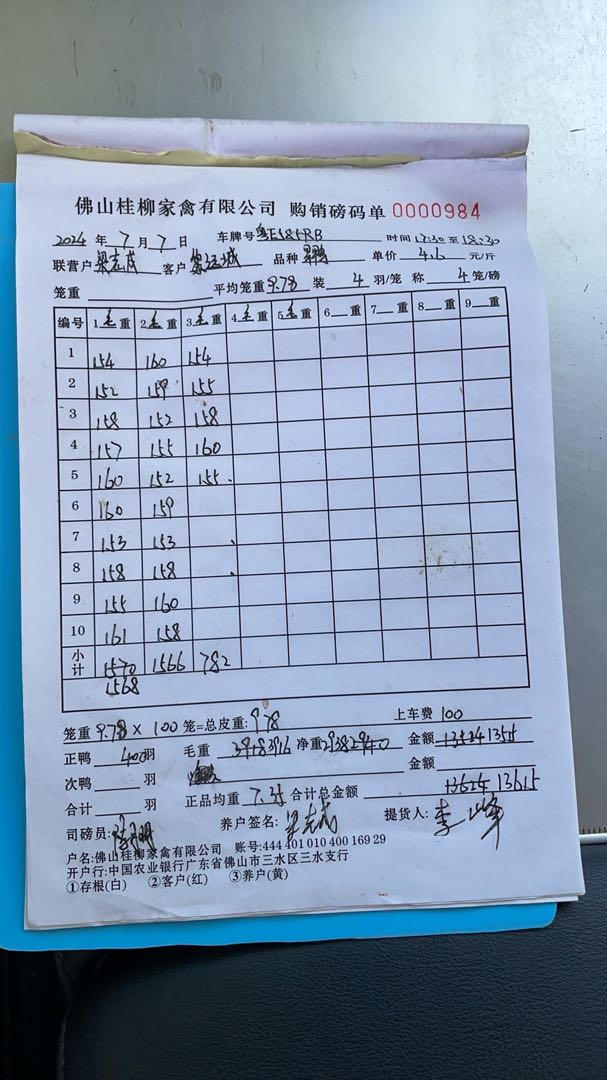 佛山桂柳家禽有限公司 购销磅码单 0000984
2024 年 7 月 7 日 车牌号 时间 17:30 至 18:30
联营户 梁志成 客户 品种 单价 4.6 元/斤
笼重 平均笼重 9.78 装 4 羽/笼 称 4 笼/磅
编号 1 毛 重 2 毛 重 3 毛 重 4 毛 重 5 毛 重 6 重 7 重 8 重 9 重
1 154 160 154
2 152 159 155
3 158 152 158
4 157 155 160
5 160 152 155
6 160 159
7 153 153
8 158 158
9 155 160
10 161 158
小计 1570 1566 782
1568
笼重 9.78 × 100 笼=总皮重: 978 上车费 100
正鸭 400 羽 毛重 3918 3916 净重 2938 2940 金额 13524 13515
次鸭 羽 金额
合计 羽 正品均重 7.35 合计总金额 13624 13615
司磅员: 养户签名: 梁志成 提货人: 李山峰
户名:佛山桂柳家禽有限公司 账号:444 401 010 400 169 29
开户行:中国农业银行广东省佛山市三水区三水支行
①存根(白) ②客户(红) ③养户(黄)